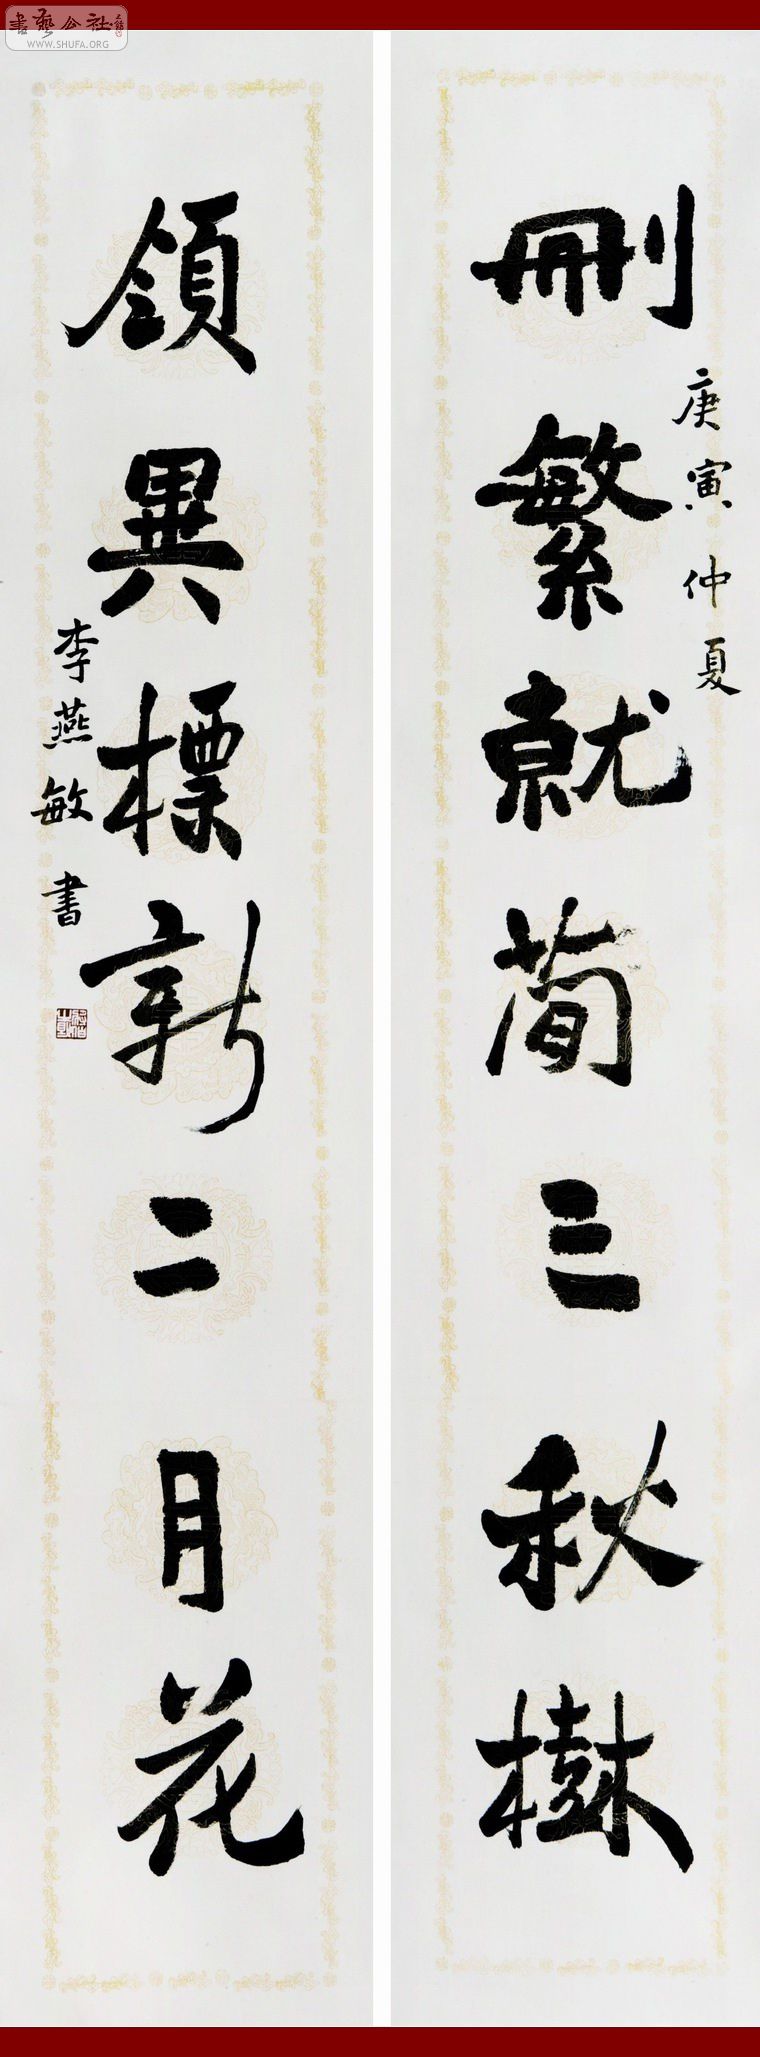 書藝公社
WWW.SHUFA.ORG
刪繁就蕳三秋樹
庚寅仲夏
領異標新二月花
李燕敏書